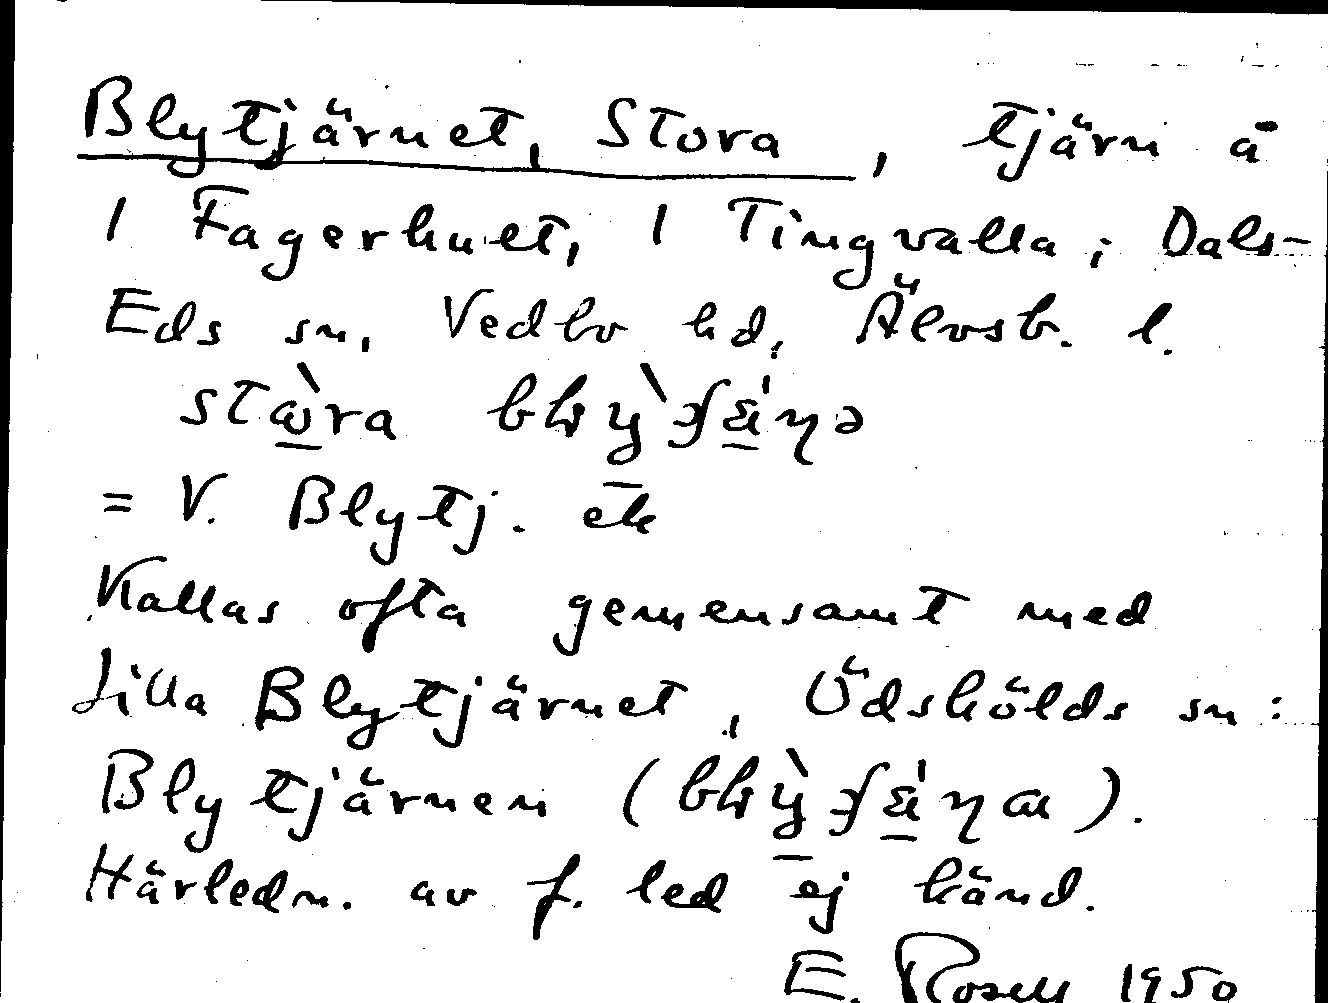 Blytjärnet, Stora, tjärn å
1 Fagerhult, 1 Tingvalla; Dals-
Eds sn, Vedbo hd, Älvsb. l.
= V. Blytj. ek
Kallas ofta gemensamt med
Lilla Blytjärnet, Ödskölds sn:
Blytjärnen
Härledn. av f. led ej känd.
E. Rosell 1950